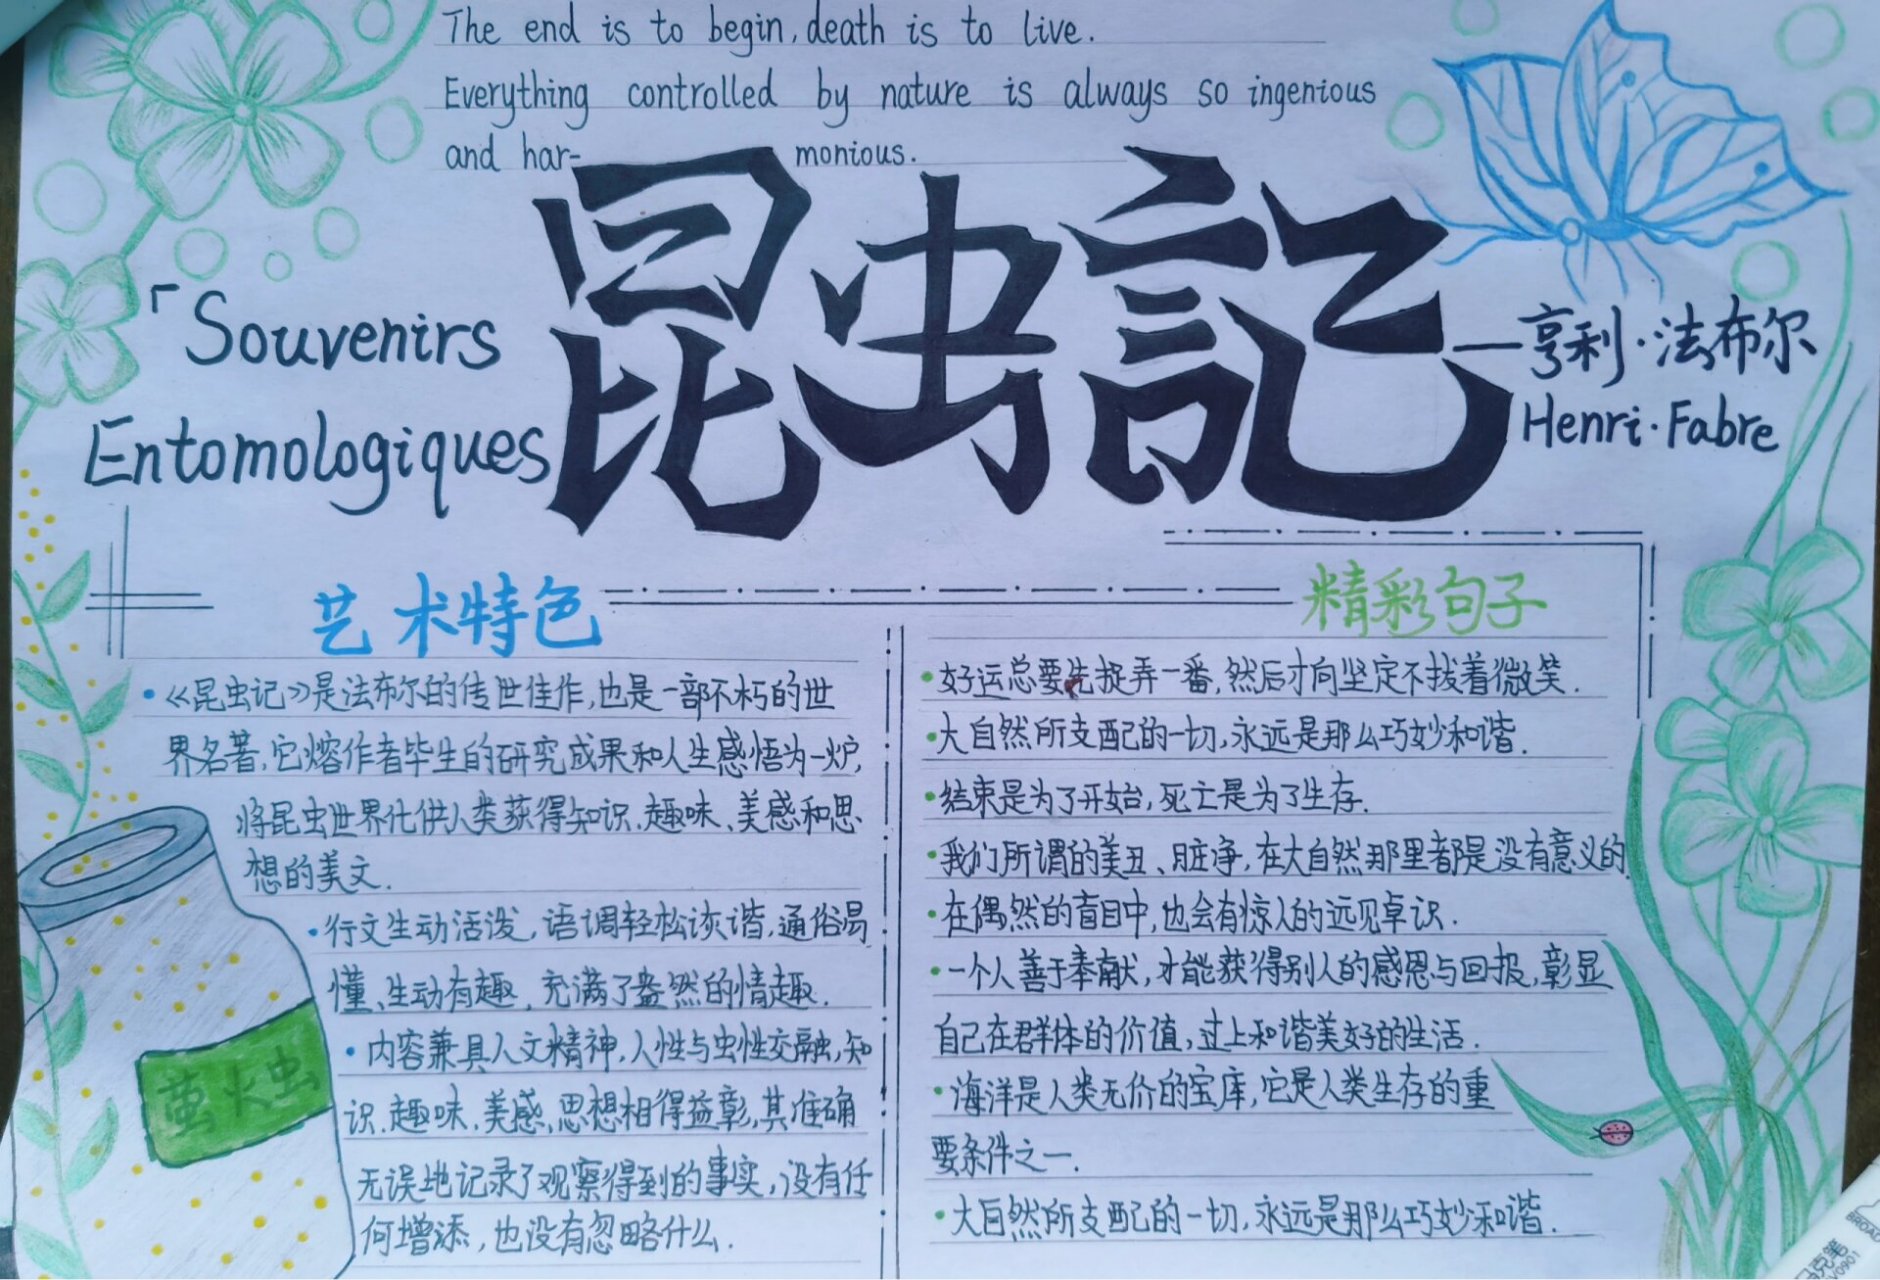 The end is to begin, death is to live.
Everything controlled by nature is always so ingenious
and har- monious.
「Souvenirs
Entomologiques
昆虫記
—亨利·法布尔
Henri·Fabre
艺术特色
·《昆虫记》是法布尔的传世佳作,也是一部不朽的世
界名著,它熔作者毕生的研究成果和人生感悟为一炉,
将昆虫世界化供人类获得知识、趣味、美感和思
想的美文.
·行文生动活泼,语调轻松诙谐,通俗易
懂、生动有趣,充满了盎然的情趣.
·内容兼具人文精神,人性与虫性交融,知
识、趣味、美感、思想相得益彰,其准确
无误地记录了观察得到的事实,没有任
何增添,也没有忽略什么.
萤火虫
精彩句子
·好运总要先捉弄一番,然后才向坚定不拔着微笑.
·大自然所支配的一切,永远是那么巧妙和谐.
·结束是为了开始,死亡是为了生存.
·我们所谓的美丑、脏净,在大自然那里都是没有意义的.
·在偶然的盲目中,也会有惊人的远见卓识.
·一个人善于奉献,才能获得别人的感恩与回报,彰显
自己在群体的价值,过上和谐美好的生活.
·海洋是人类无价的宝库,它是人类生存的重
要条件之一.
·大自然所支配的一切,永远是那么巧妙和谐.
克笔